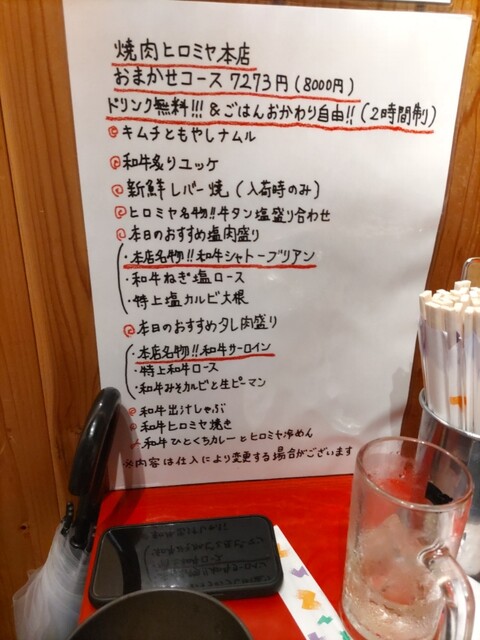 焼肉ヒロミヤ本店
おまかせコース7273円(8000円)
ドリンク無料!!!&ごはんおかわり自由!!(2時間制)
キムチともやしナムル
和牛炙りユッケ
新鮮レバー焼(入荷時のみ)
ヒロミヤ名物!!牛タン塩盛り合わせ
本日のおすすめ塩肉盛り
・本店名物!!和牛シャトーブリアン
・和牛ねぎ塩ロース
・特上塩カルビ大根
本日のおすすめタレ肉盛り
・本店名物!!和牛サーロイン
・特上和牛ロース
・和牛みそカルビと生ピーマン
和牛出汁しゃぶ
和牛ヒロミヤ焼き
和牛ひとくちカレーとヒロミヤ冷めん
※内容は仕入により変更する場合がございます